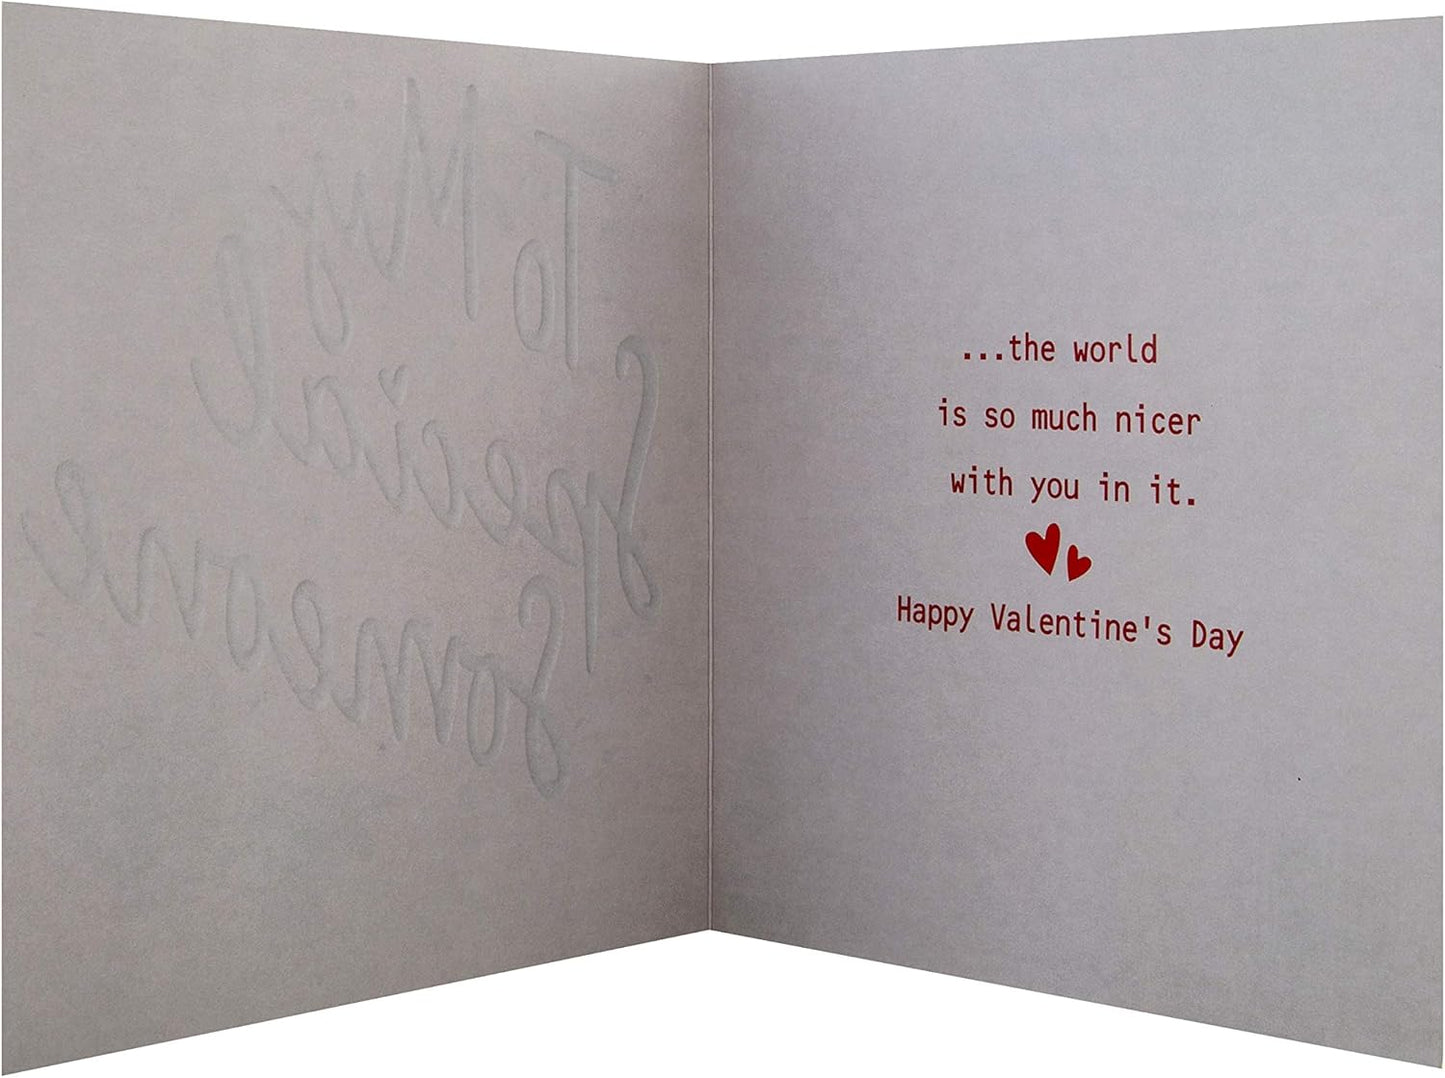 To My
Special
Someone
...the world
is so much nicer
with you in it.
Happy Valentine's Day